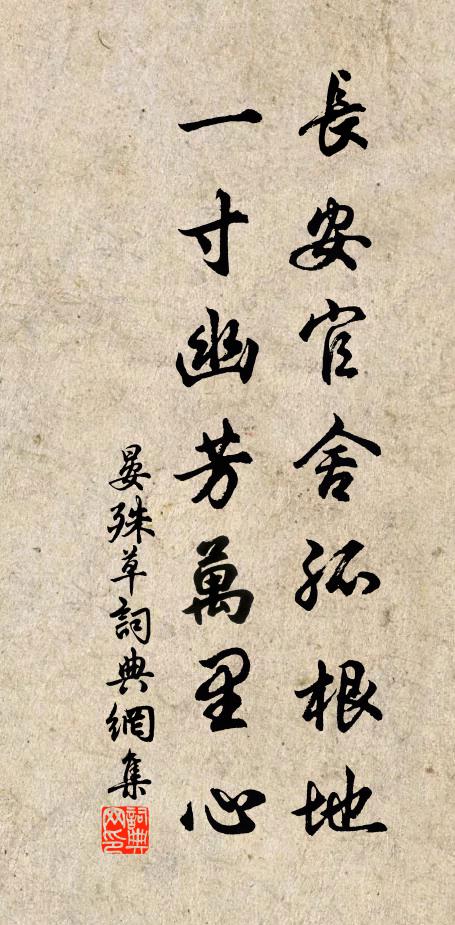 長安官舍孤根地
一寸幽芳萬里心
晏殊草詞典網集
詞典
网印